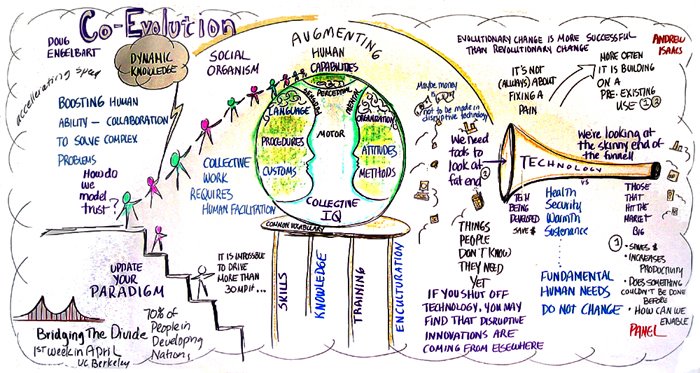 Co-Evolution
DOUG
ENGELBART
DYNAMIC
KNOWLEDGE
accelerating speed
BOOSTING HUMAN
ABILITY - COLLABORATION
TO SOLVE COMPLEX
PROBLEMS
How do
we
model
trust?
SOCIAL
ORGANISM
COLLECTIVE
WORK
REQUIRES
HUMAN FACILITATION
UPDATE
YOUR
PARADIGM
IT IS IMPOSSIBLE
TO DRIVE
MORE THAN
30 MPH...
Bridging The Divide
1ST week in April
UC Berkeley
70% of
People in
Developing
Nations
AUGMENTING
HUMAN
CAPABILITIES
SENSORY
PERCEPTUAL
LANGUAGE
PROCEDURES
CUSTOMS
MOTOR
ORGANIZATION
ATTITUDES
METHODS
COLLECTIVE
IQ
COMMON VOCABULARY
SKILLS
KNOWLEDGE
TRAINING
ENCULTURATION
EVOLUTIONARY CHANGE IS MORE SUCCESSFUL
THAN REVOLUTIONARY CHANGE
ANDREW
ISAACS
IT'S NOT
(ALWAYS) ABOUT
FIXING A
PAIN
MORE OFTEN
IT IS BUILDING
ON A
PRE-EXISTING
USE
Maybe money
not to be made in
disruptive technology
We need
tools to
look at
fat end
2
TECHNOLOGY
We're looking at
the skinny end of
the funnel!
TECH
BEING
DEVELOPED
SAVE $
vs
Health
Security
Warmth
Sustenance
THOSE
THAT
HIT THE
MARKET
BIG
1
• SAVES $
• INCREASES
PRODUCTIVITY
• DOES SOMETHING
COULDN'T BE DONE
BEFORE
• HOW CAN WE
ENABLE
THINGS
PEOPLE
DON'T KNOW
THEY NEED
YET
FUNDAMENTAL
HUMAN NEEDS
DO NOT CHANGE
IF YOU SHUT OFF
TECHNOLOGY, YOU MAY
FIND THAT DISRUPTIVE
INNOVATIONS ARE
COMING FROM ELSEWHERE
PANEL